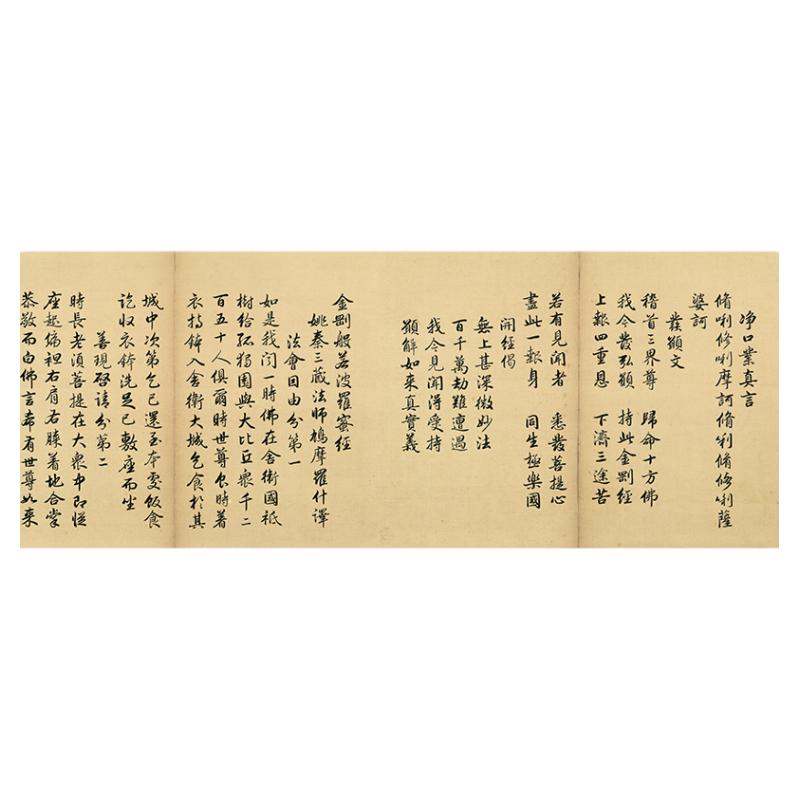 淨口業真言
脩唎修唎摩訶脩利脩脩唎薩
婆訶
發願文
稽首三界尊 歸命十方佛
我今發弘願 持此金剛經
上報四重恩 下濟三途苦
若有見聞者 悉發菩提心
盡此一報身 同生極樂國
開經偈
無上甚深微妙法
百千萬劫難遭遇
我今見聞得受持
願解如來真實義
金剛般若波羅蜜經
姚秦三藏法師鳩摩羅什譯
法會因由分第一
如是我聞一時佛在舍衛國祇
樹給孤獨園與大比丘眾千二
百五十人俱爾時世尊食時著
衣持鉢入舍衛大城乞食於其
城中次第乞已還至本處飯食
訖收衣鉢洗足已敷座而坐
善現啓請分第二
時長老須菩提在大眾中即從
座起偏袒右肩右膝著地合掌
恭敬而白佛言希有世尊如來